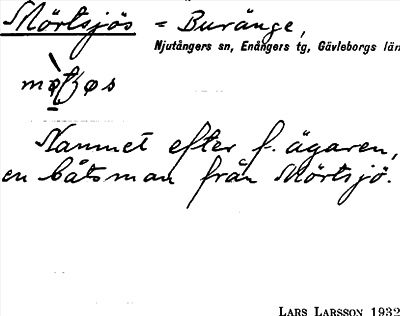 Mörtsjös = Buränge,
Njutångers sn, Enångers tg, Gävleborgs län
Namnet efter f. ägaren,
en båtsman från Mörtsjö.
LARS LARSSON 1932